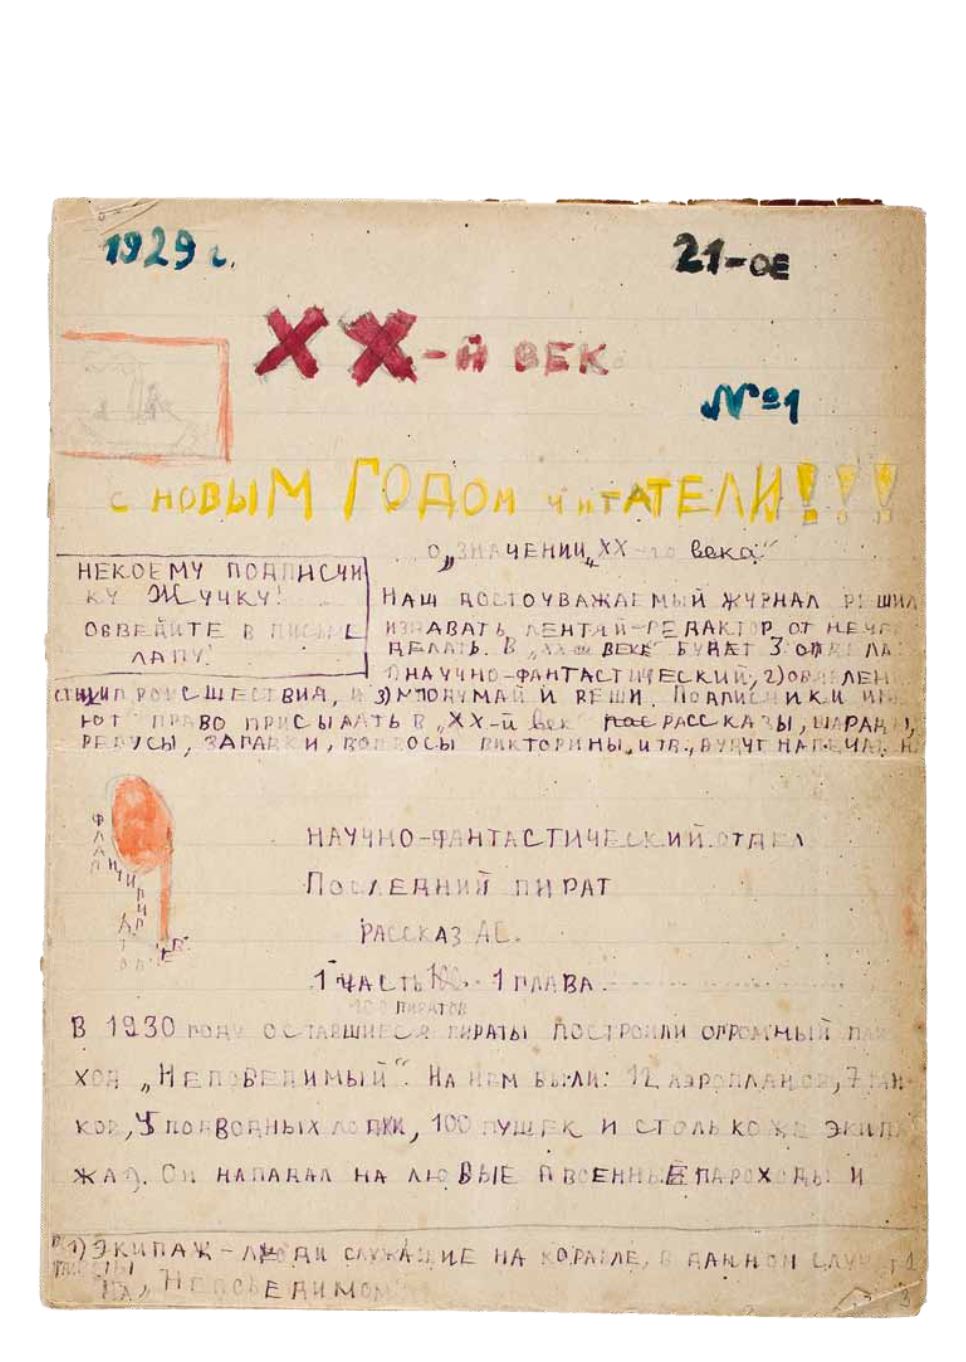 1929 г.
21-ое
XX-й век
№1
с новыМ ГОДом читАТЕЛИ!!!
О „ЗНАЧЕНИИ „XX-го века“
НЕКОЕМУ ПОДПИСЧИ
КУ ЖУЧКУ!
ОБВЕДИТЕ В ПИСЬМЕ
ЛАПУ!
НАШ ДОСТОУВАЖАЕМЫЙ ЖУРНАЛ РЕШИЛ
ИЗДАВАТЬ ЛЕНТЯЙ-РЕДАКТОР ОТ НЕЧЕ
ДЕЛАТЬ. В „XX-ом ВЕКЕ“ БУДЕТ 3
1) НАУЧНО-ФАНТАСТИЧЕСКИЙ, 2)
ПРОИСШЕСТВИЯ, И 3) ПОДУМАЙ И РЕШИ. ПОДПИСЧИКИ ИМ
ЮТ ПРАВО ПРИСЫЛАТЬ В „XX-й век РАССКАЗЫ, ШАРАДЫ,
РЕБУСЫ, ЗАГАДКИ, ВОПРОСЫ ВИКТОРИНЫ, И ТВ., БУДУТ НАПЕЧАТ
НАУЧНО-ФАНТАСТИЧЕСКИЙ ОТДЕЛ
ПОСЛЕДНИЙ ПИРАТ
РАССКАЗ АС.
1 ЧАСТЬ 1 ГЛАВА.
100 ПИРАТОВ
В 1930 ГОДУ ОСТАВШИЕСЯ ПИРАТЫ ПОСТРОИЛИ ОГРОМНЫЙ ПАРО
ХОД „НЕПОБЕДИМЫЙ“. НА НЕМ БЫЛИ: 12 АЭРОПЛАНОВ, 7 ТАН-
КОВ, ПОДВОДНЫХ ЛОДКИ, 100 ПУШЕК И СТОЛЬКО ЖЕ ЭКИП
ЖА 1). ОН НАПАДАЛ НА ЛЮБЫЕ ВОЕННЫЕ ПАРОХОДЫ И
1) ЭКИПАЖ – ЛЮДИ СЛУЖАЩИЕ НА КОРАБЛЕ, В ДАННОМ СЛУЧАЕ
НА „НЕПОБЕДИМОМ
3